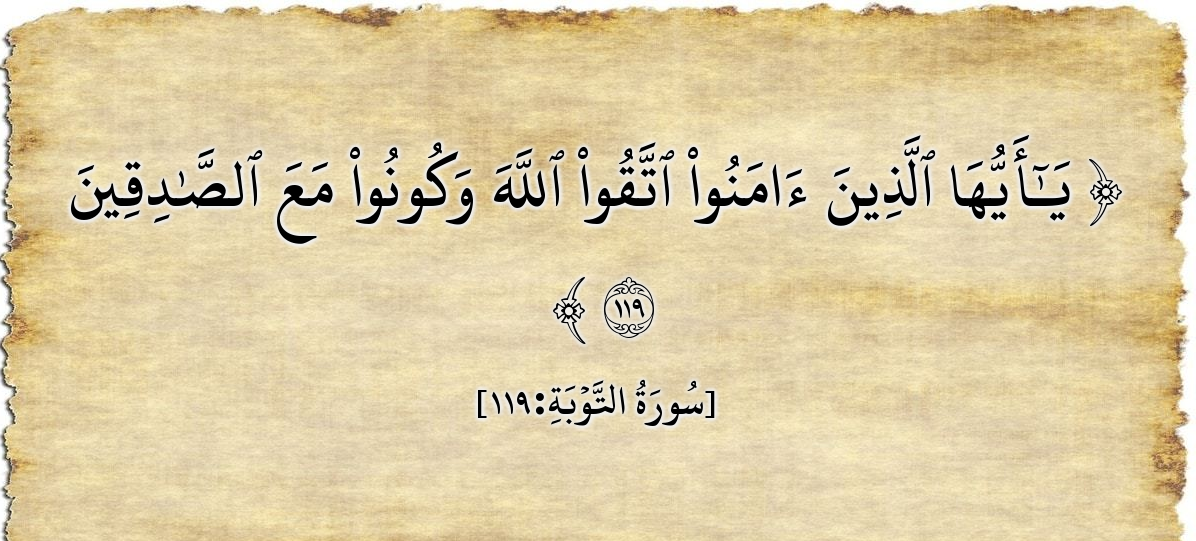 ﴿ يَـٰٓأَيُّهَا ٱلَّذِينَ ءَامَنُوا۟ ٱتَّقُوا۟ ٱللَّهَ وَكُونُوا۟ مَعَ ٱلصَّـٰدِقِينَ
١١٩ ﴾
[سُورَةُ التَّوۡبَةِ:١١٩]